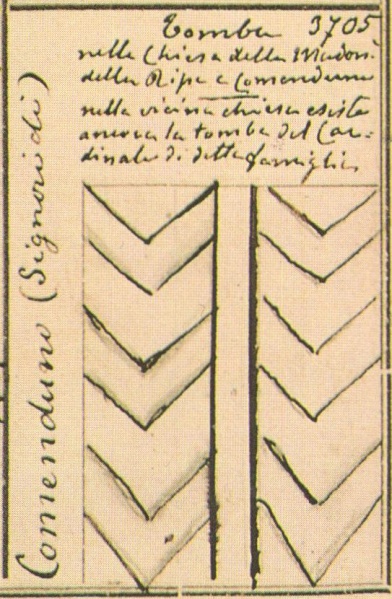 Tomba 3705
nella Chiesa della Madon:
della Ripa a Comenduno
nella vicina chiesa esiste
ancora la tomba del Car=
dinale di detta famiglia.
Comenduno (Signori di)